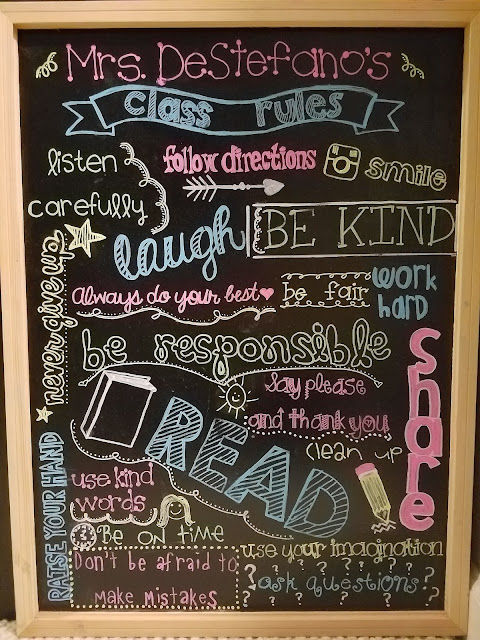 Mrs. DeStefano's
class rules
listen
carefully
follow directions
smile
laugh
BE KIND
never give up
Always do your best
be fair
work
hard
be responsible
Say please
and thank you
share
READ
clean up
RAISE YOUR HAND
use kind
words
Be on time
Don't be afraid to
make mistakes
use your imagination
? ask questions ?